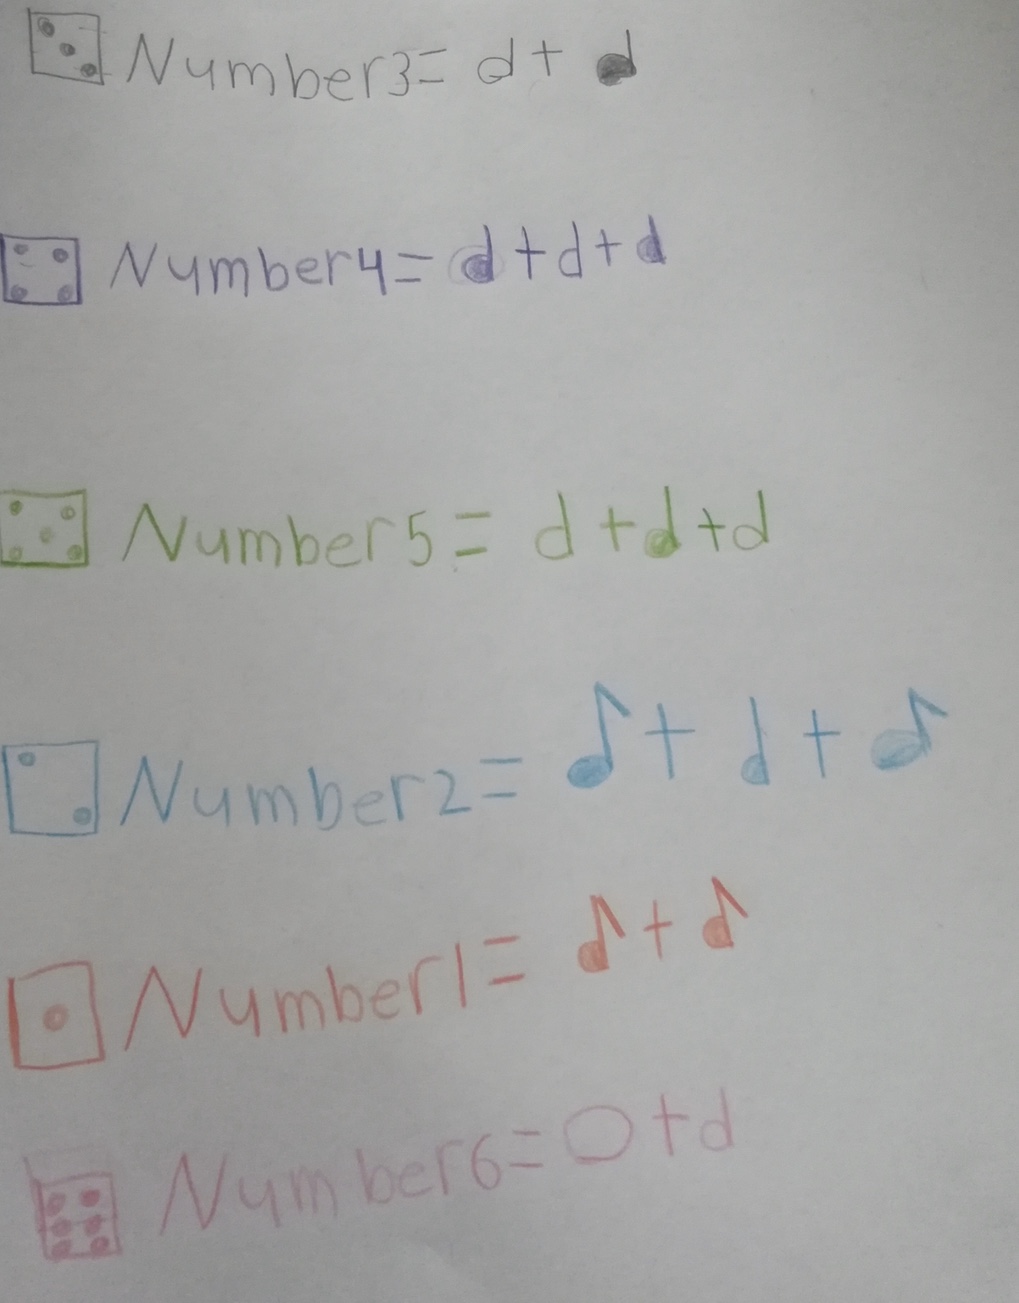 Number3= 𝅗𝅥 + ♩
Number4= ♩+𝅗𝅥+♩
Number5= 𝅗𝅥+♩+𝅗𝅥
Number2= ♪+♩+♪
Number1= ♪+♪
Number6= 𝅝+𝅗𝅥